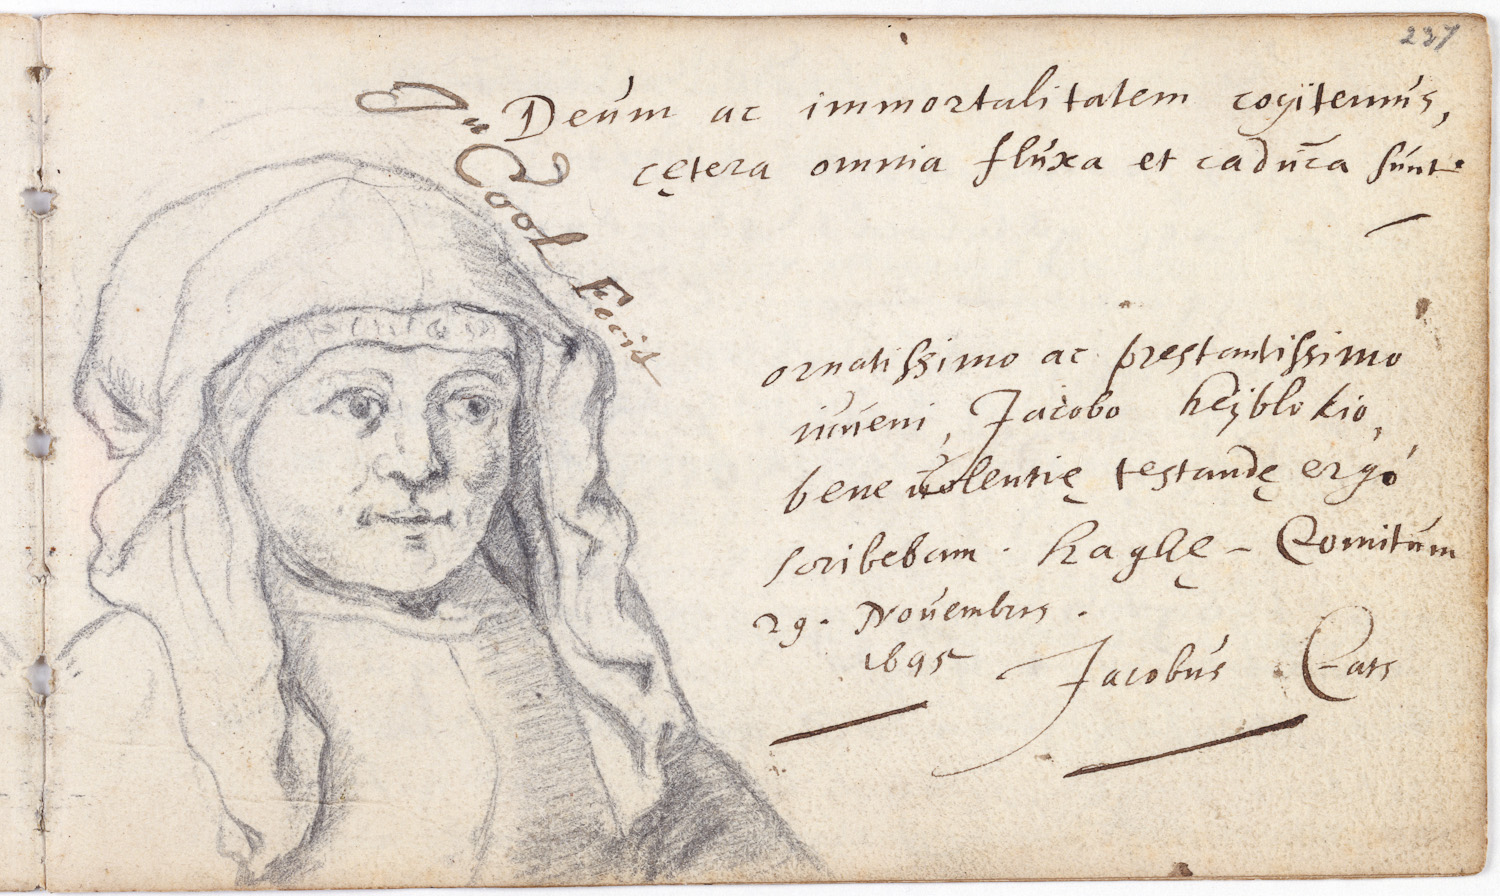 237
Deum ac immortalitatem cogitemus,
cętera omnia fluxa et caduca sunt.
Cool Fecit
ornatissimo ac prestantissimo
iuveni, Jacobo heijblokio,
bene volentię testandę ergo
scribebam. haghę-Comitum
29. Novembris.
1645 Jacobus Cats